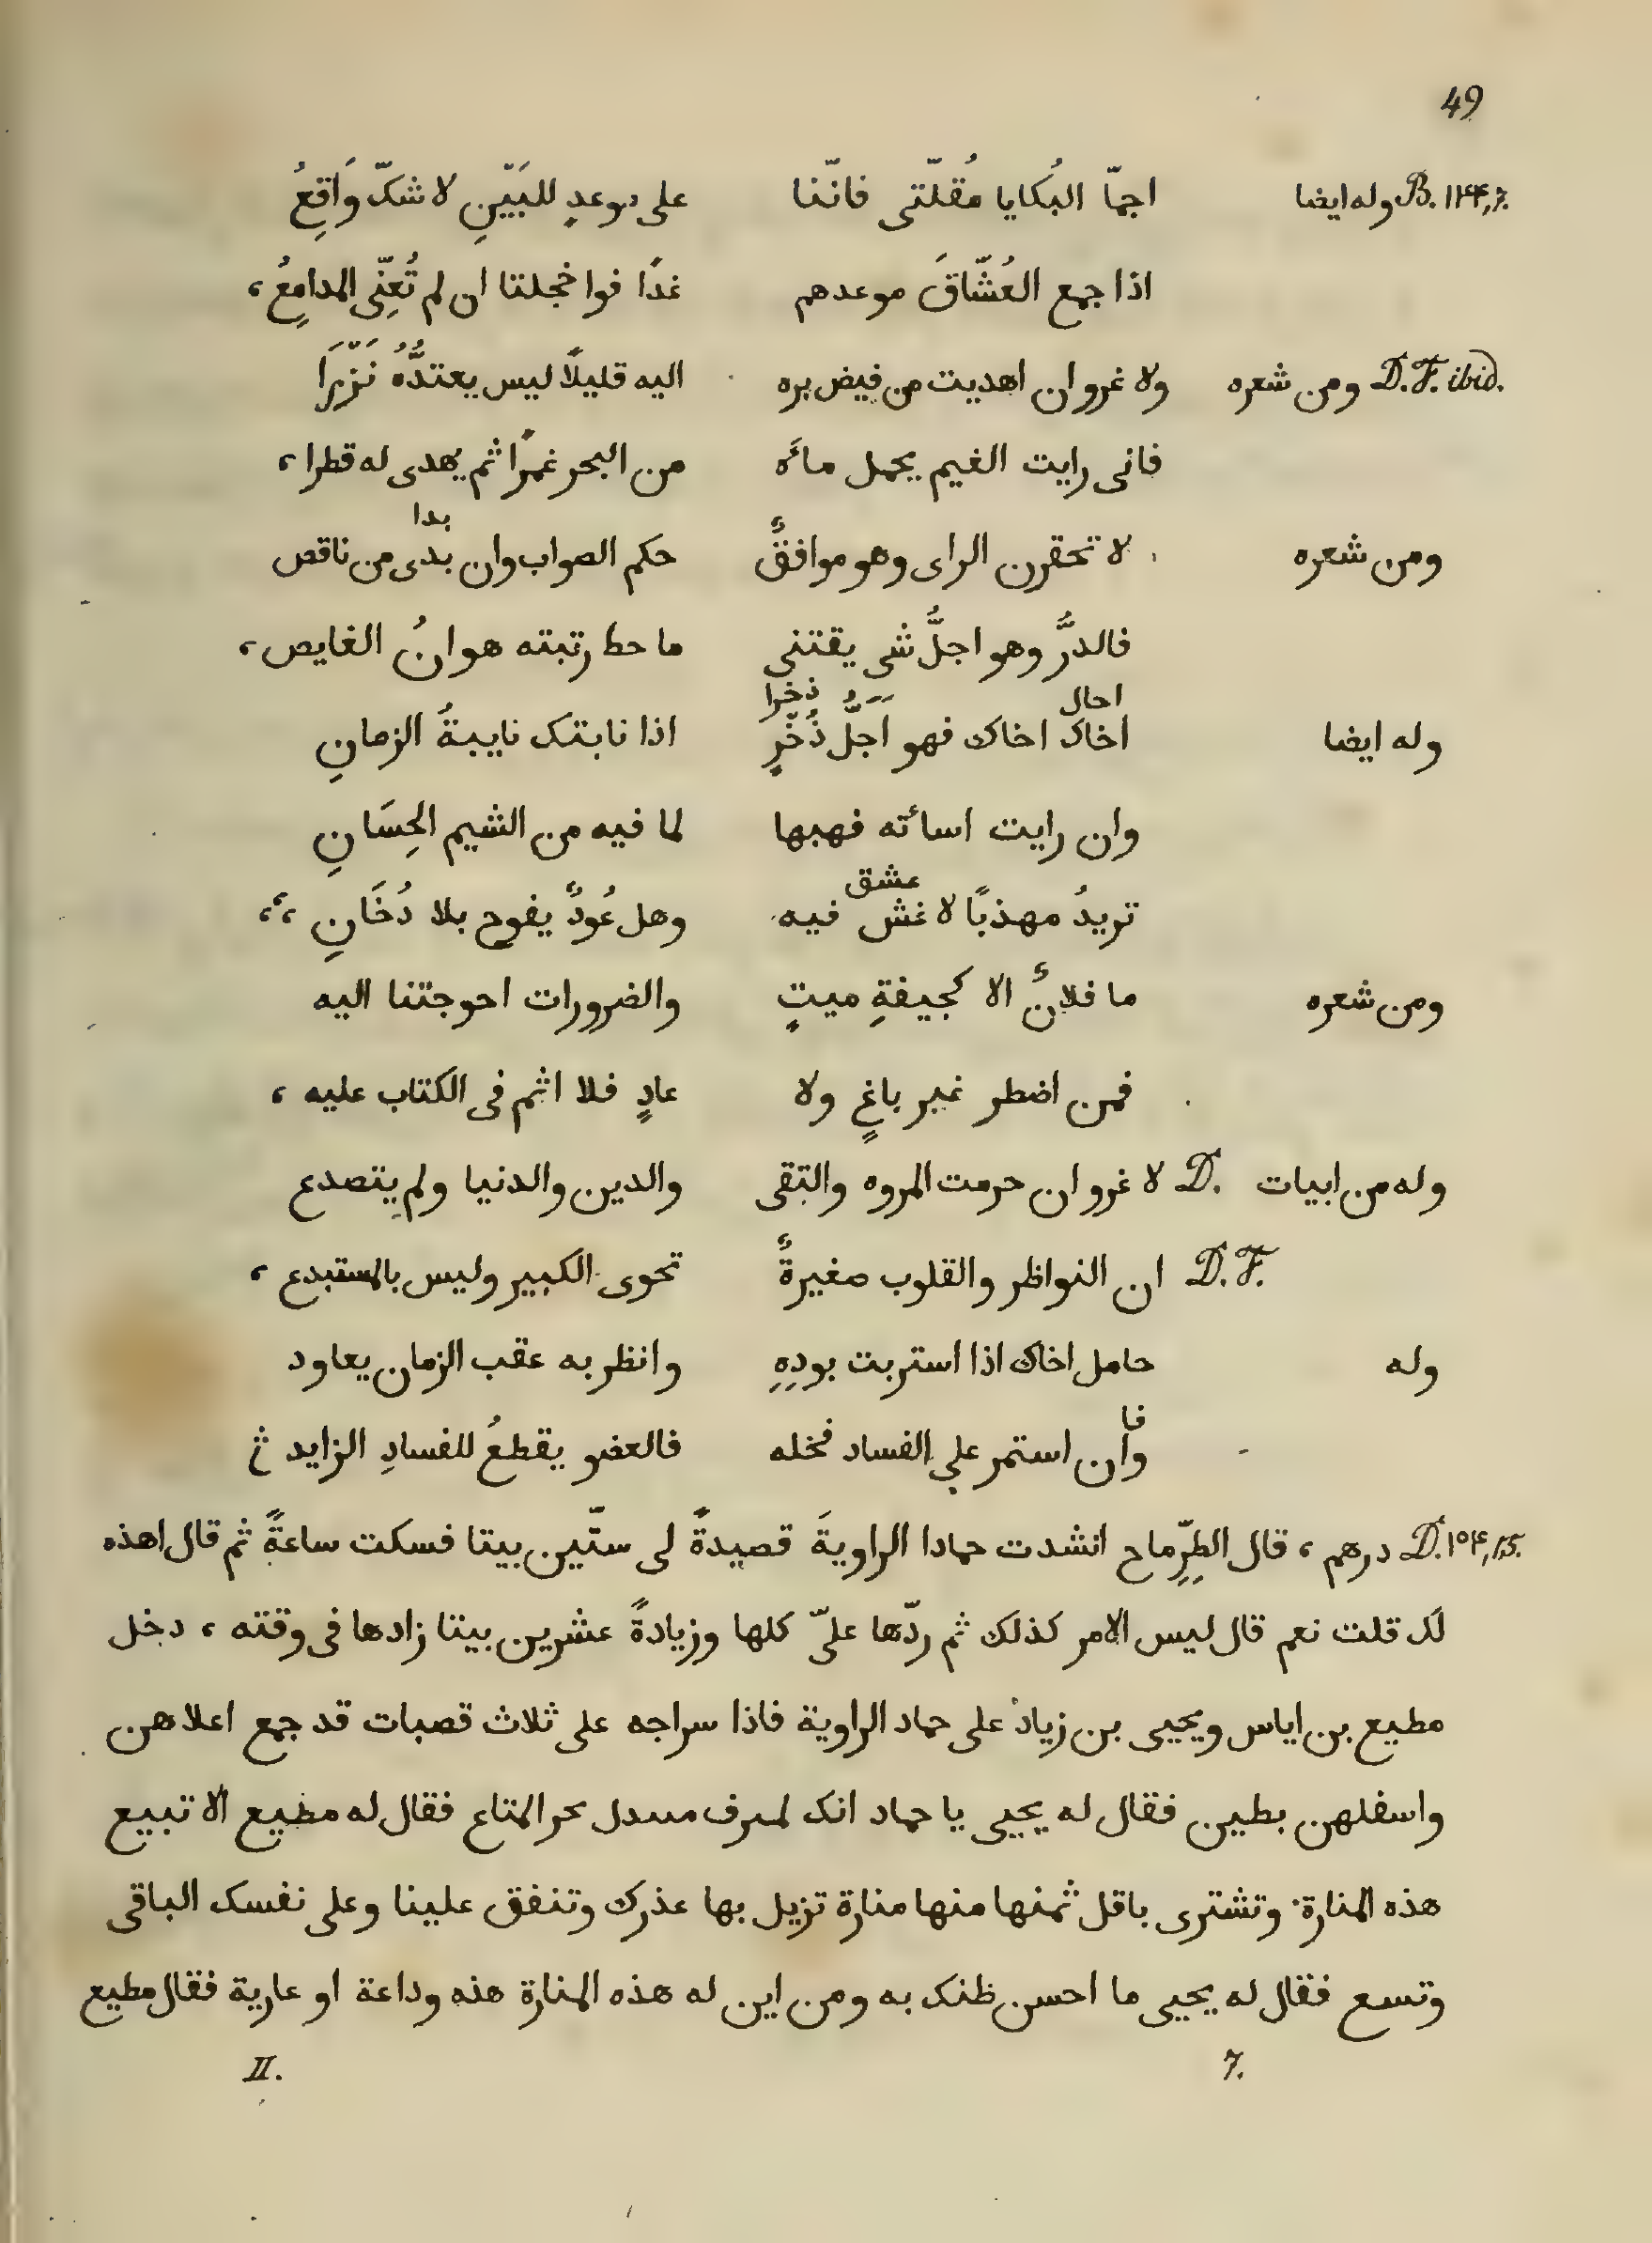 49
B. ۱۲۴,۶. وله ايضا اجمّا البُكايا مُقلّتى فانّنا على موعدٍ للبَيّنِ لا شكّ وَاقِعُ
اذا جمع العُشّاقَ موعدهم غدًا فوا خجلتا ان لم تُعِنّى المدامِعُ،
D. F. ibid. ومن شعره ولا غرو ان اهديت من فيض بره اليه قليلًا ليس يعتدُّهُ نَزّرَا
فانى رايت الغيم يحمل مائه من البحر غمرًا ثم يهدى له قطرا،
بدا
ومن شعره لا تحقرن الراى وهو موافقٌ حكم الصواب وان بدى من ناقص
فالدرُّ وهو اجلُّ شى يقتنى ما حط رتبته هوانُ الغايص،
احال ذخرا
وله ايضا اخاك اخاك فهو اَجَلُّ ذُخّرٍ اذا نابتك نايبةُ الزمانِ
وان رايت اسائته فهبها لما فيه من الشيم الحِسَانِ
عشق
تريدُ مهذبًا لا غش فيه وهل عُودٌ يفوح بلا دُخَانِ،،
ومن شعره ما فلانٌ الا كجيفةِ ميتٍ والضرورات احوجتنا اليه
فمن اضطر غير باغٍ ولا عادٍ فلا اثم فى الكتاب عليه،
وله من ابيات D. لا غرو ان حرمت المروه والتقى والدين والدنيا ولم يتصدع
D. F. ان النواظر والقلوب صغيرةٌ تحوى الكبير وليس بالمستبدع،
وله حامل اخاك اذا استربت بودِهِ وانظر به عقب الزمان يعاود
فا
وان استمر على الفساد فخله فالعضو يقطعُ للفسادِ الزايد
D. ۱۵۴,۱۵. درهم، قال الطِرِّماح انشدت حمادا الراويةَ قصيدةً لى ستّين بيتا فسكت ساعةً ثم قال اهذه
لك قلت نعم قال ليس الامر كذلك ثم ردّها علىّ كلها وزيادةً عشرين بيتا زادها فى وقته، دخل
مطيع بن اياس ويحيى بن زياد على حماد الراوية فاذا سراجه على ثلاث قصبات قد جمع اعلاهن
واسفلهن بطين فقال له يحيى يا حماد انك لمسرف مبتذل بحر المتاع فقال له مطيع الا تبيع
هذه المنارة وتشترى باقل ثمنها منها منارة تزيل بها عذرك وتنفق علينا وعلى نفسك الباقى
وتسع فقال له يحيى ما احسن ظنك به ومن اين له هذه المنارة هذه وداعة او عارية فقال مطيع
II. 7.